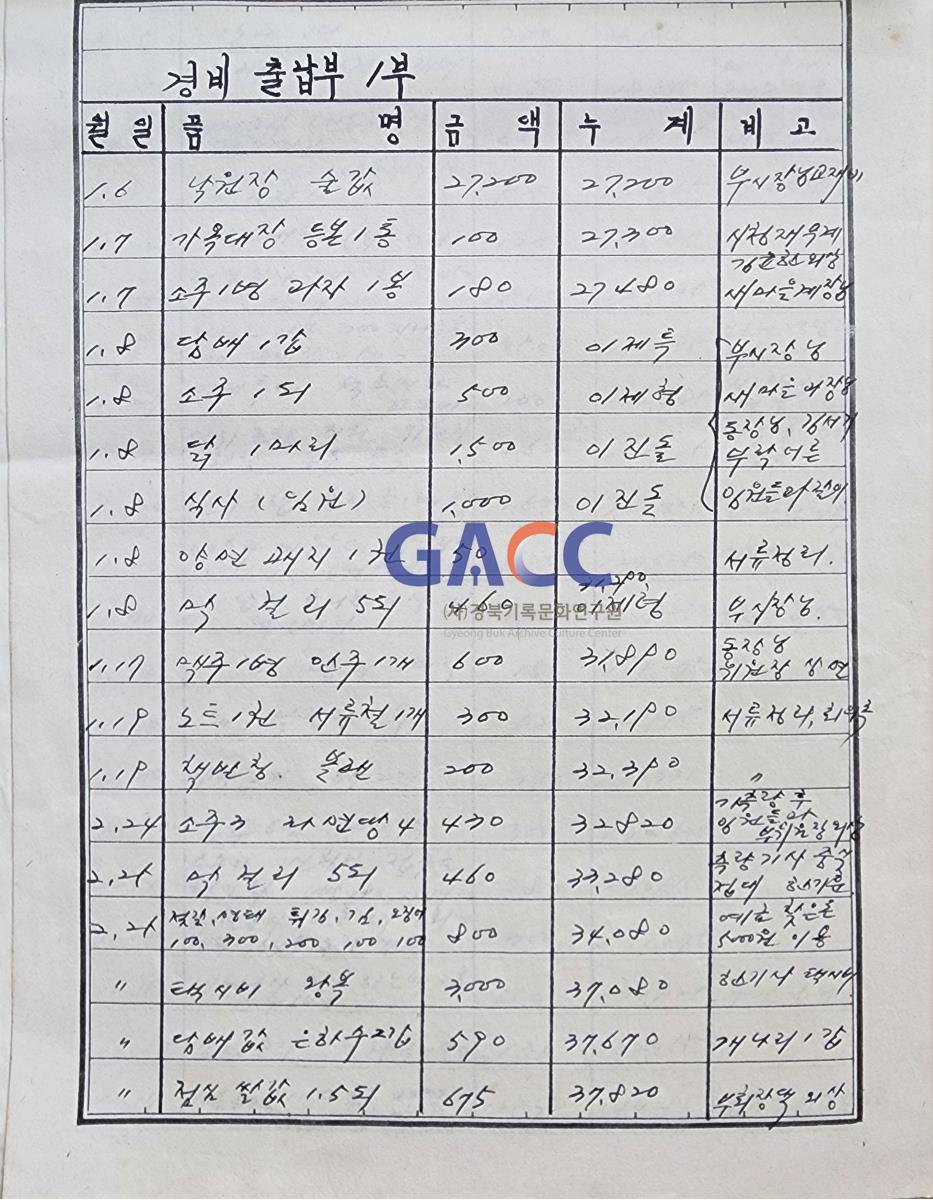 경비 출납부 1부
월 일 품 명 금 액 누 계 비 고
1.6 낙원장 술값 27,200 27,200 부시장님교제비
1.7 가옥대장 등본 1통 100 27,300 시청재무계
1.7 소주 1병 과자 1봉 180 27,480 새마을계장님
1.8 담배 1갑 300 이제특 부시장님
1.8 소주 1되 500 이제형 새마을과장님
1.8 닭 1마리 1,500 이진돌 동장님, 김서기
부락어른
1.8 식사 ( ) 1,000 이진돌 임원들과 같이
1.8 양면괘지 1권 50 서류정리.
1.8 막걸리 5되 460 부시장님.
1.17 맥주 1병 안주 1개 600 31,890 동장님
위원장 상면
1.19 노트 1권 서류철 1개 300 32,190 서류정리, 회의록
1.19 책받침. 볼펜 200 32,390 〃
2.24 소주 3 4 430 32820 측량 후
임원들과
2.21 막걸리 5되 460 33,280 측량기사 중식
접대
2.21 젓갈, 명태
100, 300, 200, 100, 100 800 34,080 예금 찾은돈
5,000원 이용
〃 택시비 왕복 3,000 37,080 택시비
〃 담배값 은하수 2갑 590 37,670 개나리 1갑
〃 점심 쌀값 1.5되 675 37,820 부회장댁 외상
GACC
(사)경북기록문화연구원
Gyeong Buk Archive Culture Center